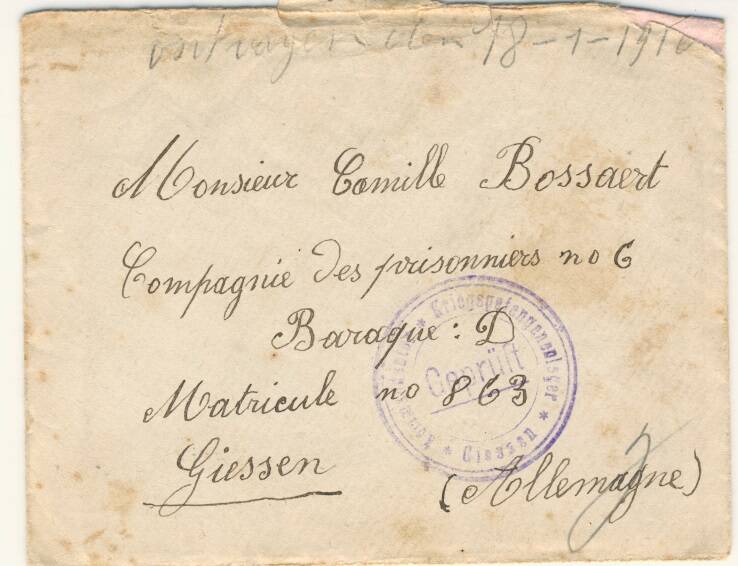 ontvangen den 18-1-1916
Monsieur Camille Bossaert
Compagnie des prisonniers no 6
Baraque: D
Matricule no 863
Giessen
(Allemagne)
* Kriegsgefangenenlager * Giessen *
Geprüft